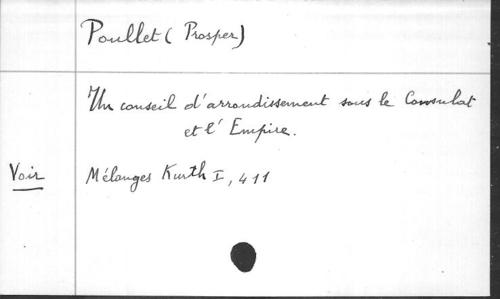 Poullet (Prosper)
Un conseil d'arrondissement sous le Consulat
et l'Empire.
Voir Mélanges Kurth I, 411